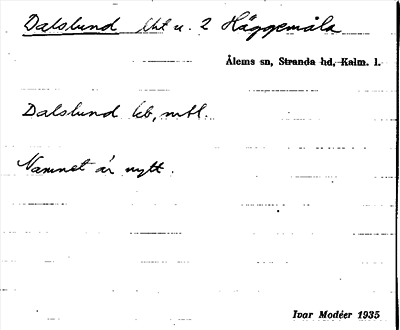 Dalslund lht u. 2 Häggemåla
Ålems sn, Stranda hd, Kalm. l.
Dalslund kb, mtl.
Namnet är nytt.
Ivar Modéer 1935